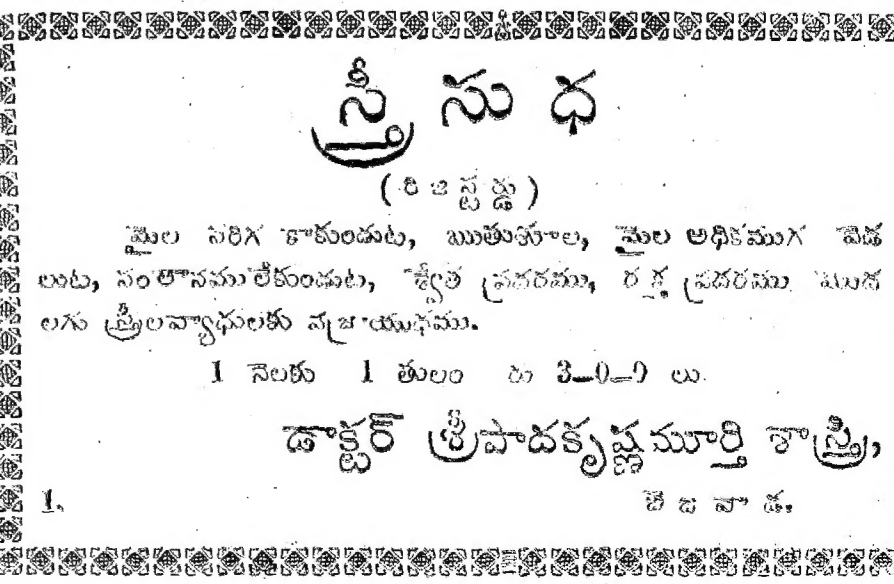 స్త్రీ సు ధ
( రి జి స్ట ర్డు )
మైల సరిగ కాకుండుట, ఋతుశూల, మైల అధికముగ వెడ
లుట, సంతానము లేకుండుట, శ్వేత ప్రదరము, రక్త ప్రదరము మొద
లగు స్త్రీల వ్యాధులకు వజ్రాయుధము.
1 నెలకు 1 తులం రు 3_0_0 లు.
డాక్టర్ శ్రీపాదకృష్ణమూర్తి శాస్త్రి,
1. బెజవాడ.